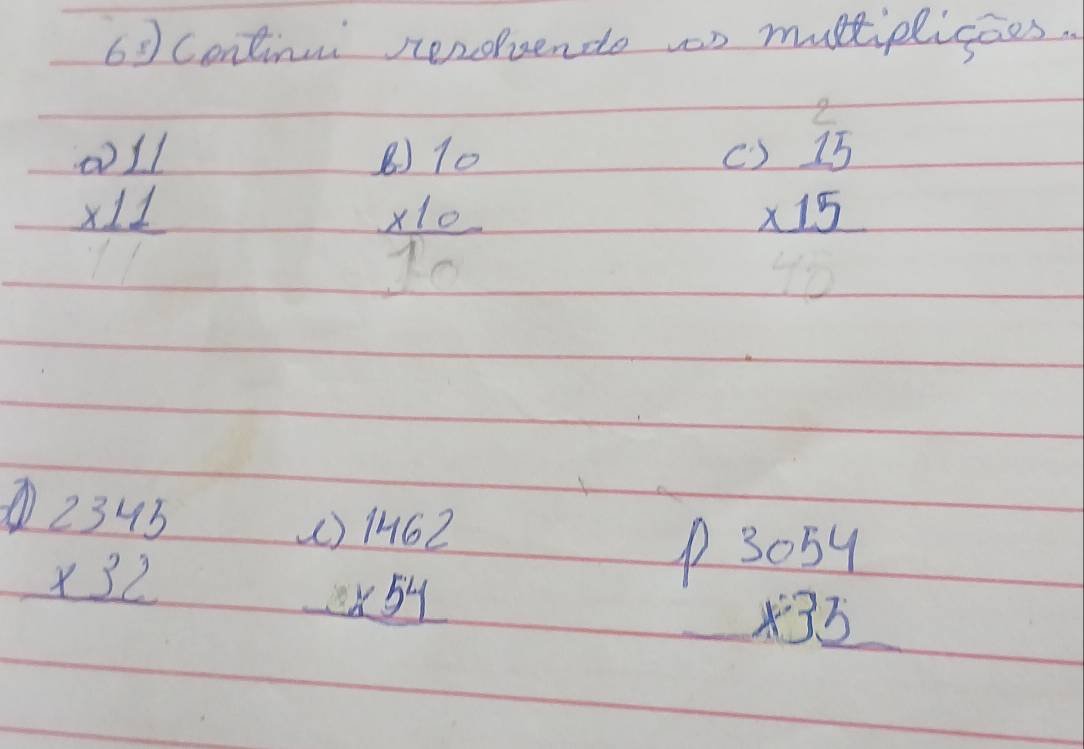 6º) Continui resolvendo as multiplições.
2
a) 11 b) 10 c) 15
x11 x10 x15
11 10 45
d) 2345 e) 1462 f) 3054
x32 x54 x35